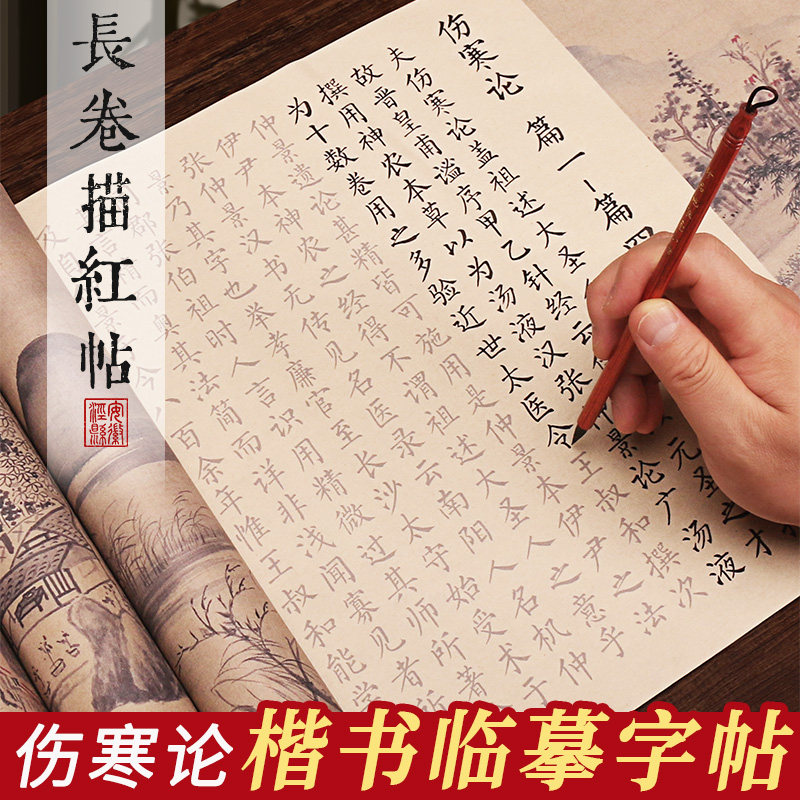 長卷描紅帖
安徽
涇縣
伤寒论 篇一-篇四
夫伤寒论盖祖述大圣
故晋皇甫谧序甲乙针经云
元圣之才
撰用神农本草以为汤液汉张仲景论广汤液
为十数卷用之多验近世太医令王叔和撰次
仲景遗论甚精皆可施用是仲景本伊尹之法
伊尹本神农之经得不谓祖述大圣人之意乎
张仲景汉书无传见名医录云南阳人名机仲
景乃其字也举孝廉官至长沙太守始受术于
郡张伯祖时人言识用精微过其师所著
言而奥其法简而详非浅闻寡见者所
及自景今八百余年惟王叔和能学
伤寒论楷书临摹字帖